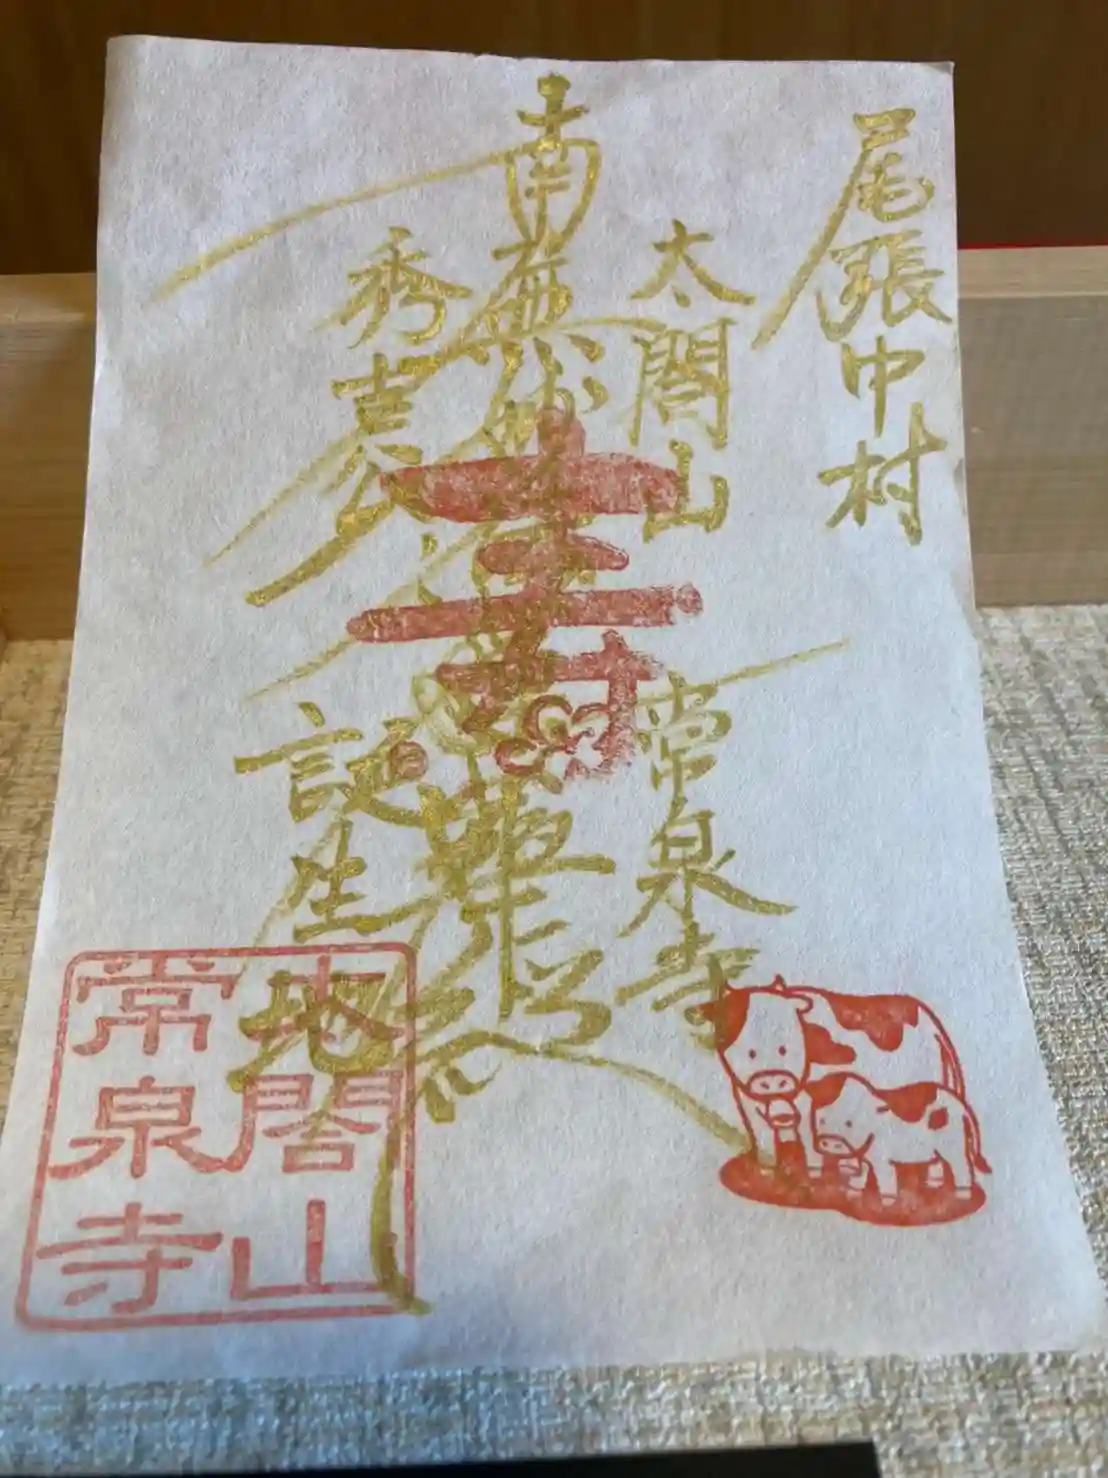 尾張中村
太閤山
常泉寺
南無妙法蓮華経
秀吉公
誕生地
寿
太閤山
常泉寺